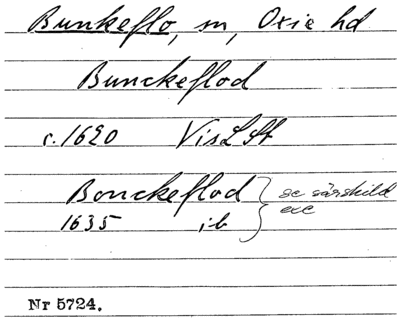 Bunkeflo, sn, Oxie hd
Bunckeflod
c. 1620 VisLSt
Bonckeflod } se särskild
1635 ib } exc
Nr 5724.